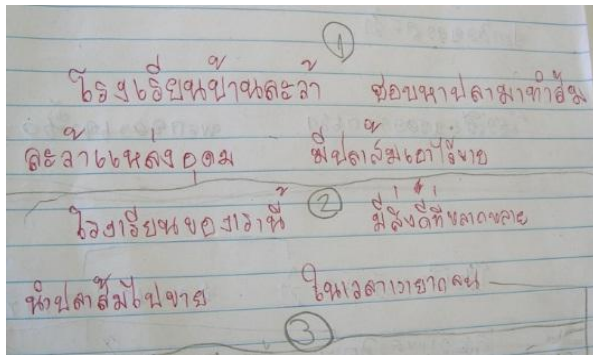 1
โรงเรียนบ้านละว้า ชอบหาปลามาทำส้ม
ละว้าแหล่งอุดม มีปลาส้มเอาไว้ขาย
2
โรงเรียนของเรานี้ มีสิ่งดีที่หลากหลาย
นำปลาส้มไปขาย ในเวลา
3